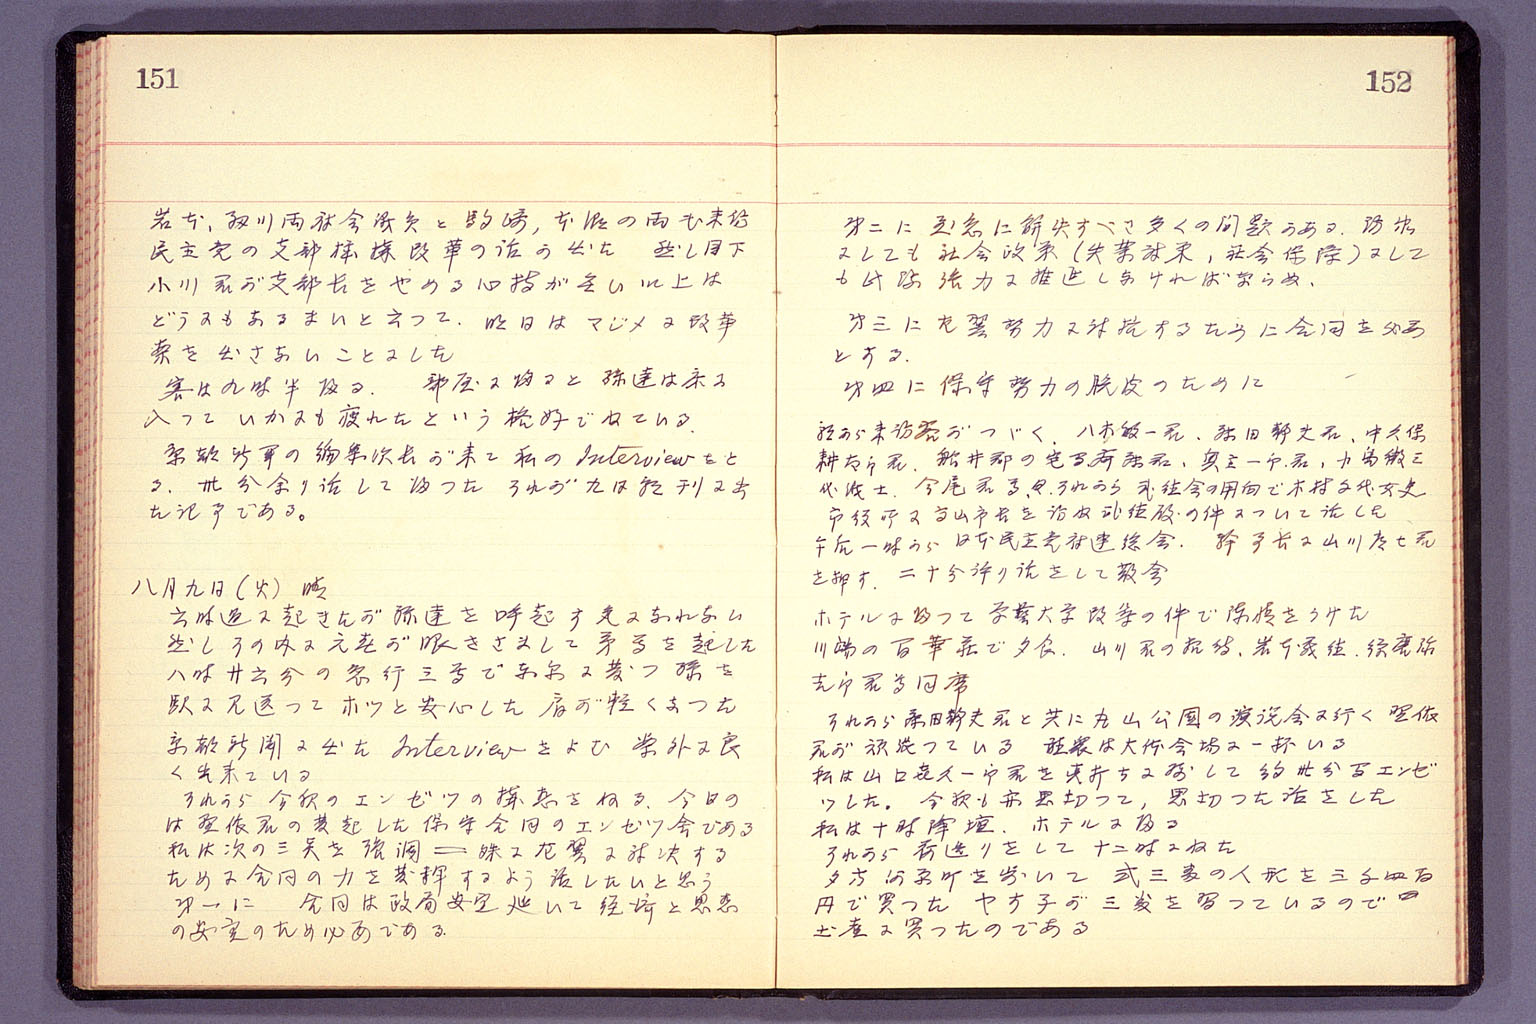 151
岩本、細川両社会議員と駒崎,
民主党の支部機構改革の話が出た 然し目下
小川君が支部長をやめる心持が無い以上は
どうにもあるまいと云つて、昨日はマジメな改革
案を出さないことにした
客は九時半帰る. 部屋に帰ると 弥達は床に
入つて いかにも疲れたという格好でねている.
京都新聞の編集次長が来て 私の Interview をと
る. 卅分余り話して帰つた それが九日夕刊に出
た記事である。
八月九日(火) 晴
六時過に起きたが 弥達を呼起す気になれない
然しその内に元春が眼をさまして 弟等を起した
八時廿六分の急行三等で東京に発つ 孫を
駅に見送つて ホツと安心した 肩が軽くなつた
京都新聞に出た Interview をよむ 案外に良
く出来ている
それから 今夜のエンゼツの構想をねる. 今日の
は 君の発起した保守合同のエンゼツ会である
私は次の三矢を強調 殊に左翼に対決する
ために合同の力を発揮するよう話したいと思う
第一に 合同は政局安定 延いて経済と思想
の安定のため必要である.
152
第二に 至急に解決すべき多くの問題がある.
にしても 社会政策(失業対策, 社会保障)にして
も 強力に推進しなければならぬ.
第三に 左翼勢力に対抗するために合同を必要
とする.
第四に 保守勢力の脱皮のために
朝から来訪客がつづく. 八木敏一君. 静夫君、中久保
君. 船井郡の 君、奥主一郎君、
代議士. 今尾君等. それから 武徳会の用向で木村文代女史
市役所に高山市長を訪ね 武徳殿の件について話した
午后一時から 日本民主党府連総会. 幹事長に山川 君
を押す. 二十分許り話をして散会
ホテルに帰つて 学芸大学改築の件で陳情をうけた
川端の百華荘で夕食. 山川君の招待、岩本義徳. 須磨弥
吉郎君等同席
それから 静夫君と共に 円山公園の演説会に行く
君が頑張つている 聴衆は大体会場に一杯いる
私は山口喜久一郎君を真打ちに残して 約卅分間エンゼ
ツした。今夜も亦思切つて, 思切つた話をした
私は十時降壇. ホテルに帰る
それから 荷造りをして 十二時にねた
夕方 河原町を歩いて 式三番の人形を三千四百
円で買つた ヤす子が三番を習つているので
土産に買つたのである